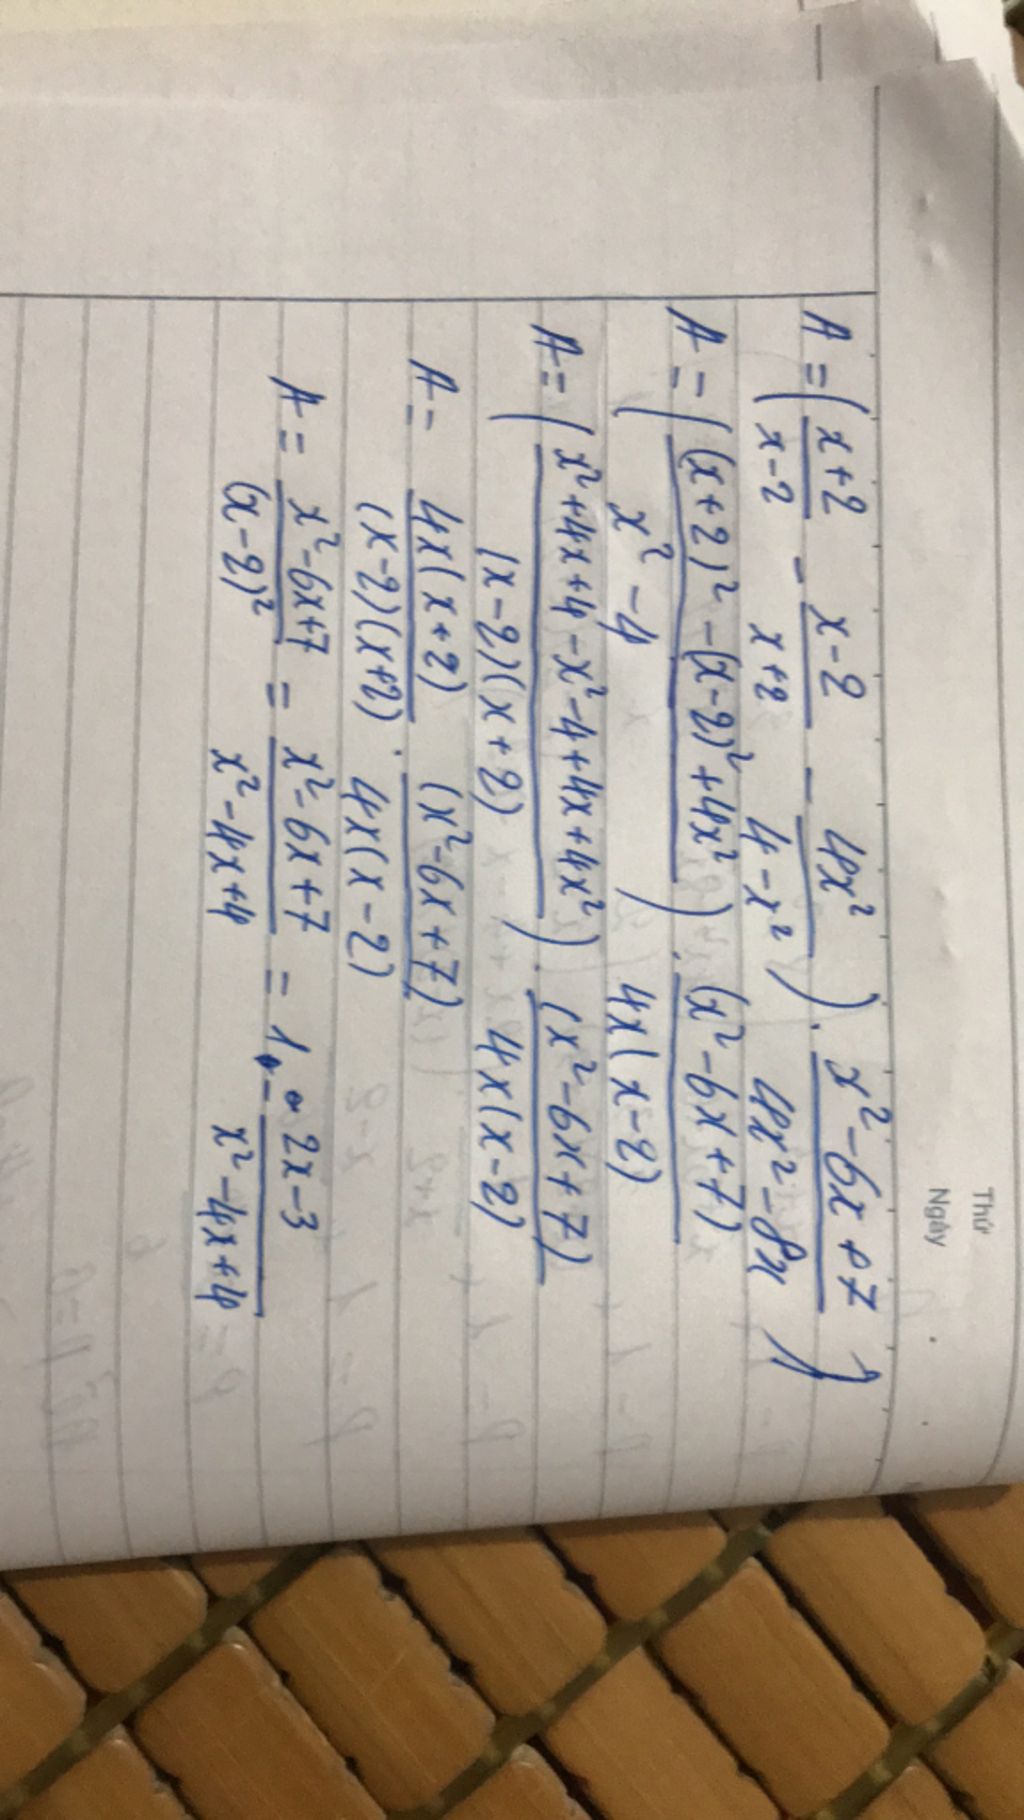 Thứ
Ngày
A = ( x+2/x-2 - x-2/x+2 - 4x²/4-x² ) . x²-6x+7/4x²-8x )
A = ( (x+2)² - (x-2)² + 4x²/x²-4 ) . (x²-6x+7)/4x(x-2)
A = ( x²+4x+4-x²-4+4x+4x²/(x-2)(x+2) ) . (x²-6x+7)/4x(x-2)
A = 4x(x+2)/(x-2)(x+2) . (x²-6x+7)/4x(x-2)
A = x²-6x+7/(x-2)² = x²-6x+7/x²-4x+4 = 1 - 2x-3/x²-4x+4